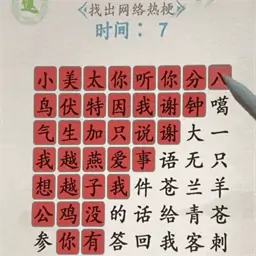 《找出网络热梗》
时间：7
小美太你听你分八
鸟伏特因我谢钟噶
气生加只说谢大一
我越燕爱事语无只
想越子我件苍兰羊
公鸡没的话给青苍
参你有答回我客刺